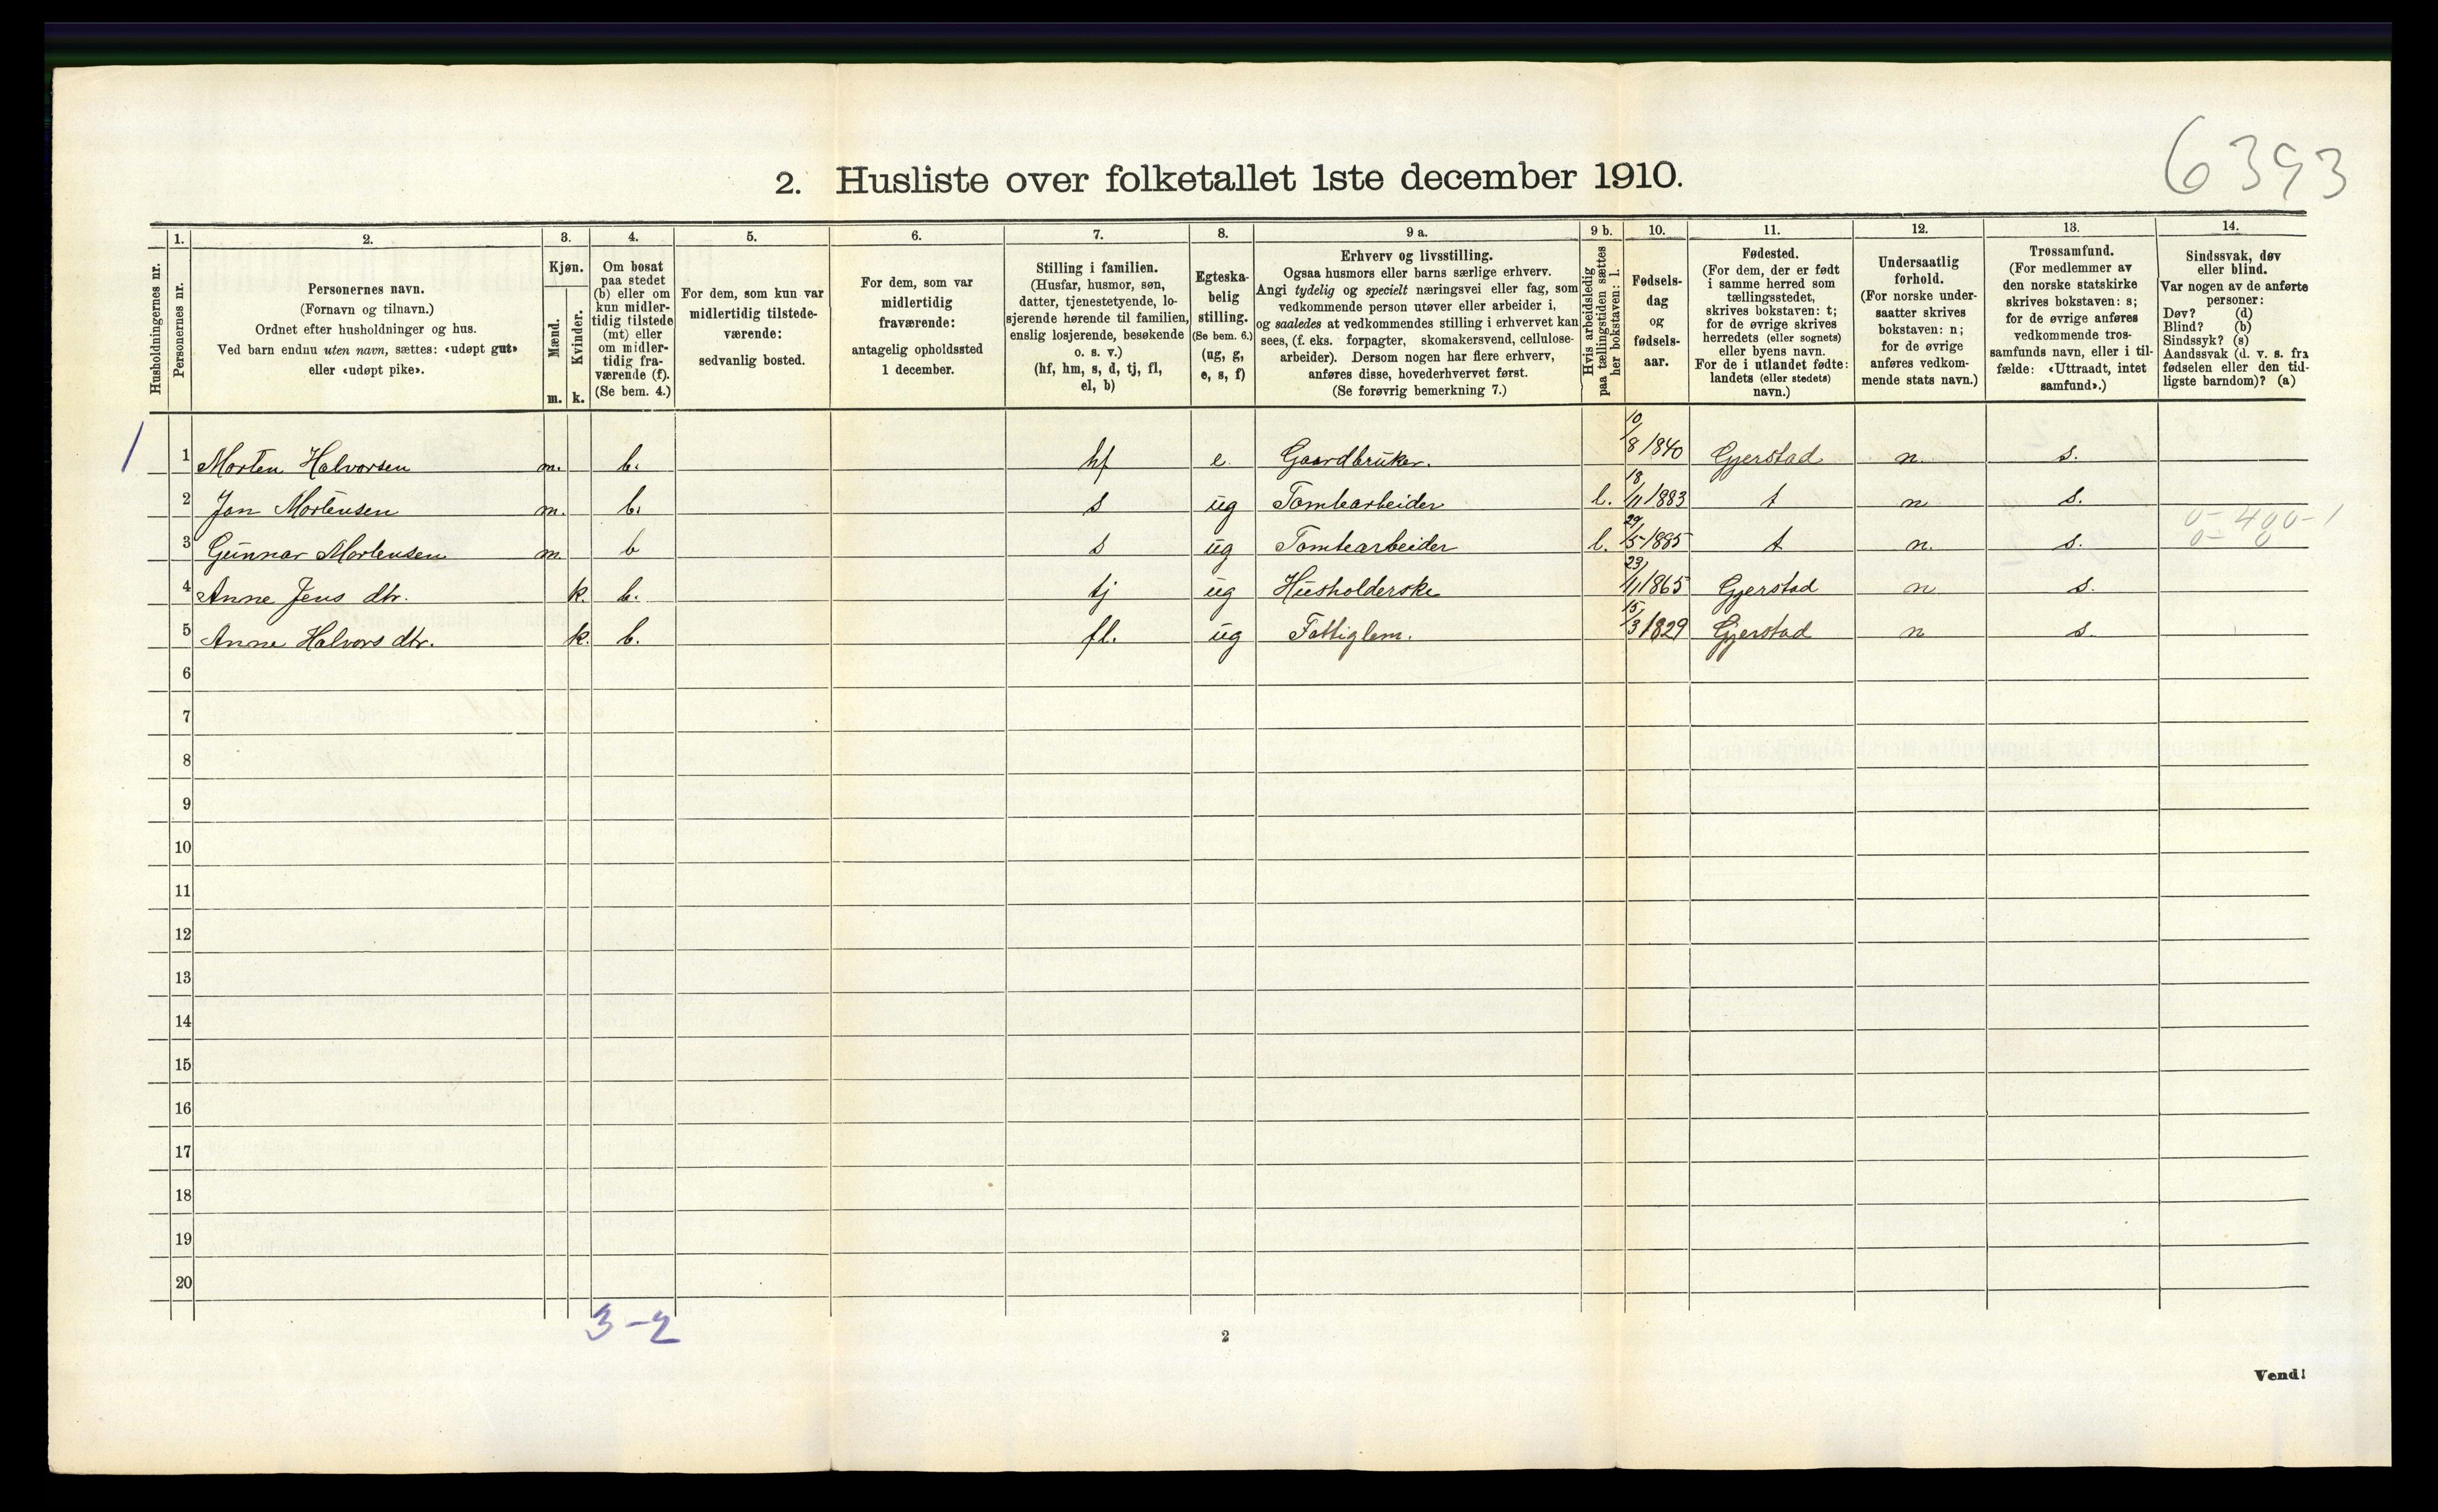 6393
2. Husliste over folketallet 1ste december 1910.
Husholdningernes nr.
1.
Personernes nr.
2.
Personernes navn.
(Fornavn og tilnavn.)
Ordnet efter husholdninger og hus.
Ved barn endnu uten navn, sættes: «udøpt gut»
eller «udøpt pike».
3.
Kjøn.
Mænd.
Kvinder.
m. k.
4.
Om bosat
paa stedet
(b) eller om
kun midler-
tidig tilstede
(mt) eller
om midler-
tidig fra-
værende (f).
(Se bem. 4.)
5.
For dem, som kun var
midlertidig tilstede-
værende:
sedvanlig bosted.
6.
For dem, som var
midlertidig
fraværende:
antagelig opholdssted
1 december.
7.
Stilling i familien.
(Husfar, husmor, søn,
datter, tjenestetyende, lo-
sjerende hørende til familien,
enslig losjerende, besøkende
o. s. v.)
(hf, hm, s, d, tj, fl,
el, b)
8.
Egteska-
belig
stilling.
(Se bem. 6.)
(ug, g,
e, s, f)
9 a.
Erhverv og livsstilling.
Ogsaa husmors eller barns særlige erhverv.
Angi tydelig og specielt næringsvei eller fag, som
vedkommende person utøver eller arbeider i,
og saaledes at vedkommendes stilling i erhvervet kan
sees, (f. eks. forpagter, skomakersvend, cellulose-
arbeider). Dersom nogen har flere erhverv,
anføres disse, hovederhvervet først.
(Se forøvrig bemerkning 7.)
9 b.
Hvis arbeidsledig
paa tællingstiden sættes
her bokstaven: l.
10.
Fødsels-
dag
og
fødsels-
aar.
11.
Fødested.
(For dem, der er født
i samme herred som
tællingsstedet,
skrives bokstaven: t;
for de øvrige skrives
herredets (eller sognets)
eller byens navn.
For de i utlandet fødte:
landets (eller stedets)
navn.)
12.
Undersaatlig
forhold.
(For norske under-
saatter skrives
bokstaven: n;
for de øvrige
anføres vedkom-
mende stats navn.)
13.
Trossamfund.
(For medlemmer av
den norske statskirke
skrives bokstaven: s;
for de øvrige anføres
vedkommende tros-
samfunds navn, eller i til-
fælde: «Uttraadt, intet
samfund».)
14.
Sindssvak, døv
eller blind.
Var nogen av de anførte
personer:
Døv? (d)
Blind? (b)
Sindssyk? (s)
Aandssvak (d. v. s. fra
fødselen eller den tid-
ligste barndom)? (a)
1 1 Morten Halvorsen m. b. hf e. Gaardbruker. 10/8 1840 Gjerstad n. s.
2 Jon Mortensen m. b. s ug Tomtearbeider l. 18/11 1883 t n s.
3 Gunnar Mortensen m b s ug Tomtearbeider l. 29/5 1885 t n. s.
0-400-1
4 Anne Jens dtr. k. b. tj ug Husholderske 23/11 1865 Gjerstad n s.
5 Anne Halvors dtr. k. b. fl. ug Fattiglem. 15/3 1829 Gjerstad n s.
6
7
8
9
10
11
12
13
14
15
16
17
18
19
20
3-2
2
Vend!